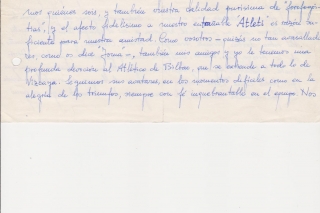 nos quiénes sois, y también vuestra calidad purísima de "forofogo-
itias", y el afecto fidelísimo a nuestro entrañable Atleti es razón su-
ficiente para nuestra amistad. Como vosotros - quizás no tan arrolladora-
, como os dice "Josu" -, también mis amigos y yo le tenemos una
profunda devoción al Atlético de Bilbao, que se extiende a todo lo de
Vizcaya. Seguimos sus avatares, en los momentos difíciles como en la
alegría de los triunfos, siempre con fe inquebrantable en el equipo. Nos